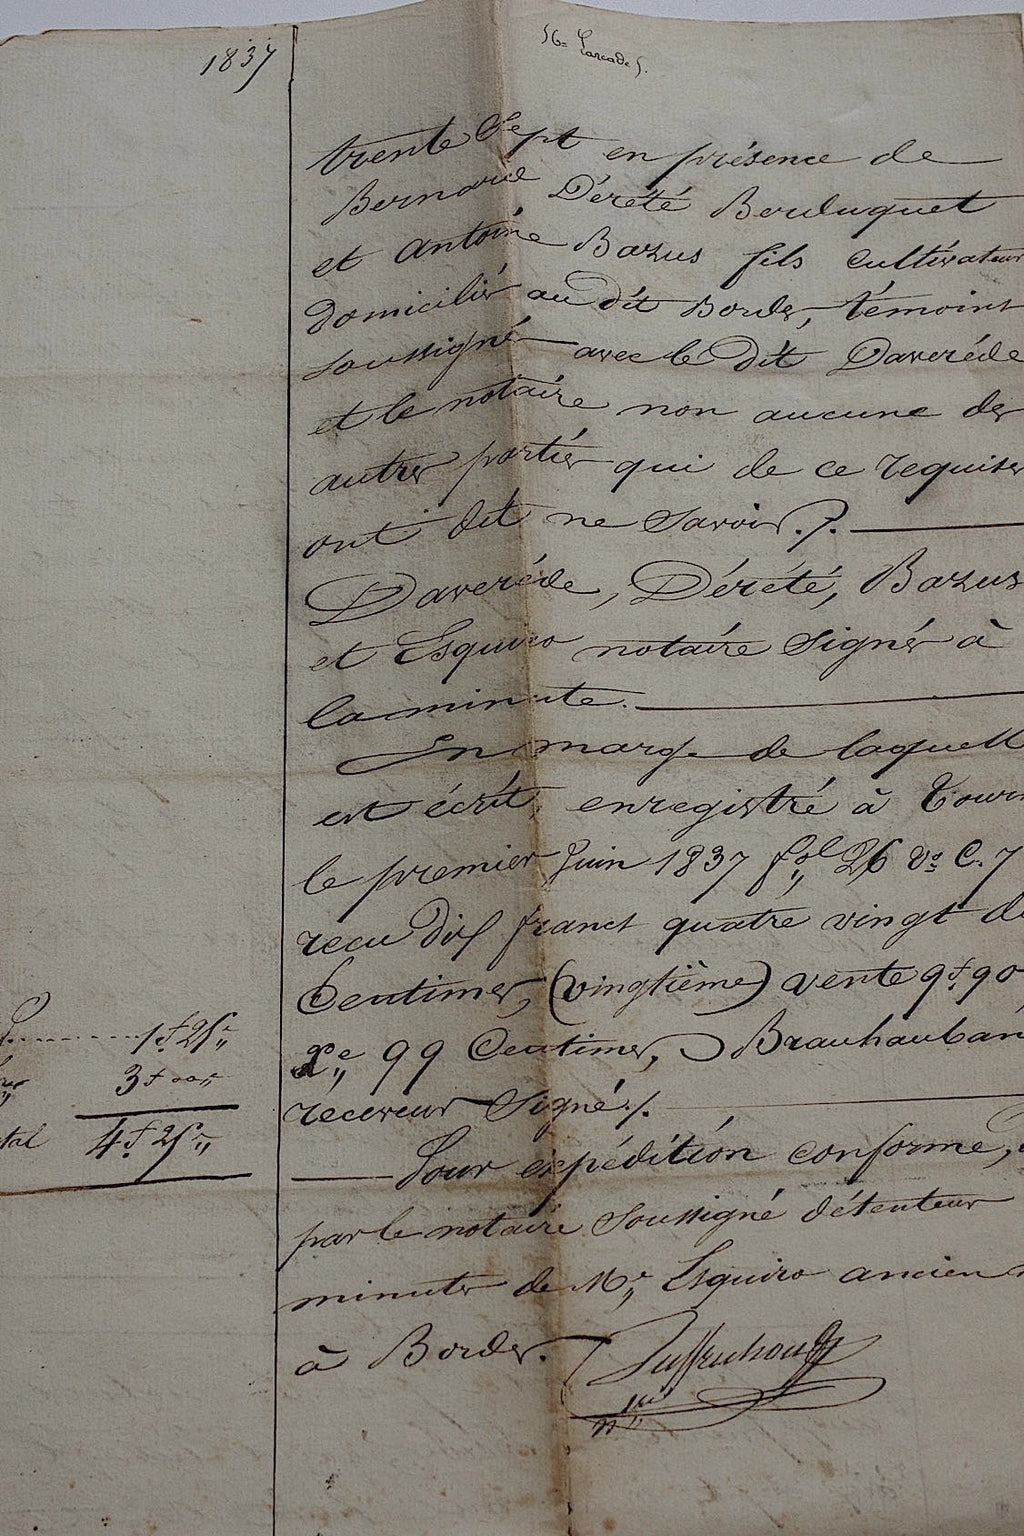 1837
trente Sept en présence de
Bernard Déreté Berduquet
et antoine Bazus fils cultivateur
domiciliés au dit Bordes, témoins
soussignés avec le dit Daveréde
et le notaire non aucune des
autres parties qui de ce requises
ont dit ne Savoir./.
Daveréde, Déreté, Bazus
et Esquiro notaire Signés à
la minute.
En marge de laquelle
est écrit, enregistré à Tourn
le premier Juin 1837 fol 26 Vo C. 7
recu dix francs quatre vingt d
Centimes, (vingtième) vente 9f. 90
Xe,, 99 Centimes, Brauhauban
receveur Signé./.
1f 25c,,
3f 00,,
tal 4f 25c,,
Pour expédition conforme,
par le notaire Soussigné détenteur
minutes de Me,, Esquiro ancien n
à Bordes.
nre